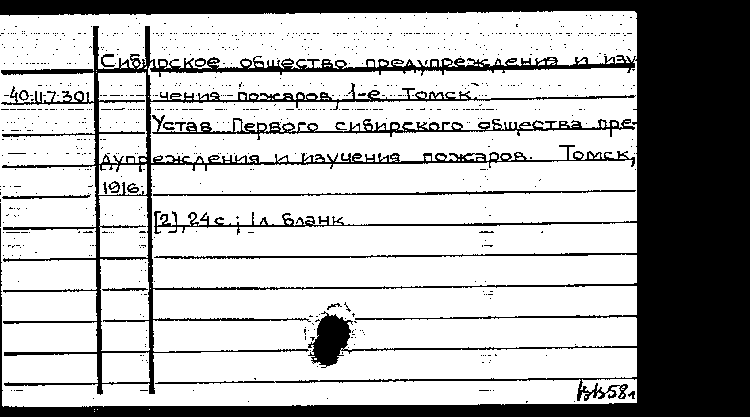 Сибирское общество предупреждения и изу-
40.11.7.301 чения пожаров, 1-е. Томск.
Устав Первого сибирского общества пре-
дупреждения и изучения пожаров. Томск,
1916.
[2], 24 с.; 1 л. бланк.